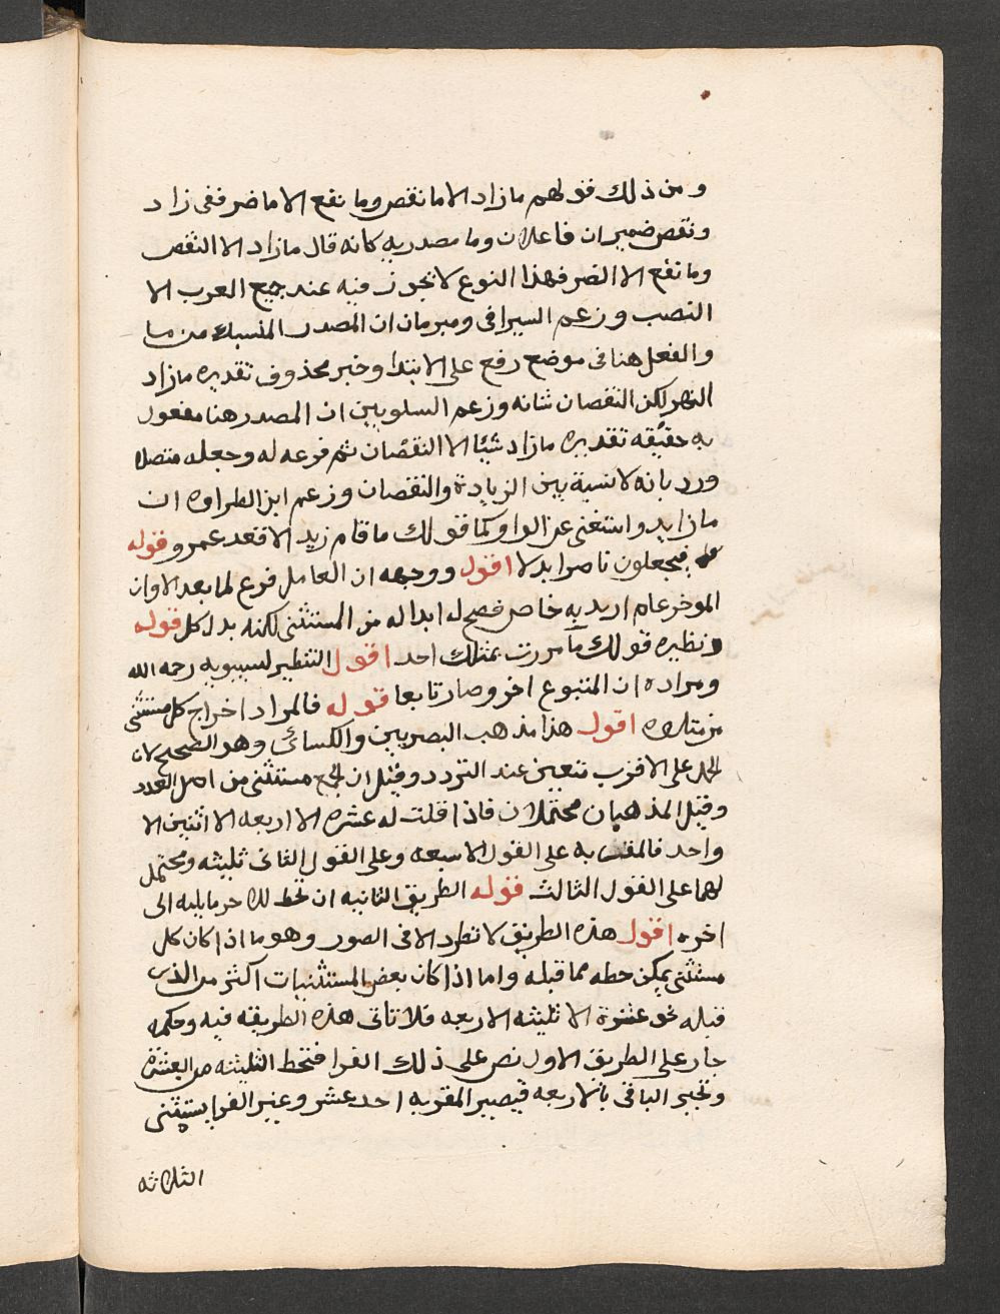 ومن ذلك قولهم ما زاد الا ما نقص وما نفع الا ما ضر ففى زاد
ونقص ضميران فاعلان وما مصدريه كانه قال ما زاد الا النقص
وما نفع الا الضر فهذا النوع لا يجوز فيه عند جميع العرب الا
النصب وزعم السيرافى ومبرمان ان المصدر المنسبك من ما
والفعل هنا فى موضع رفع على الابتدا وخبر محذوف تقديره ما زاد
النهر لكن النقصان شانه وزعم السلوبين ان المصدر هنا مفعول
به حقيقه تقديره ما زاد شيًا الا النقصان ثم فرعه له وجعله متصلا
ورد بانه لا نسبة بين الزيادة والنقصان وزعم ابن الطراوه ان
ما زايد واستغنى عن الواو كما قولك ما قام زيد الا قعد عمرو قوله
فيجعلون ناصرا بدلا اقول ووجهه ان العامل فرع لما بعد الا وان
الموخر عام اريد به خاص فصح له ابداله من المستثنى لكنه بدل كل قوله
ونظيره قولك ما مررت بمثلك احد اقول التنظير لسيبويه رحمه الله
ومراده ان المتبوع اخر وصار تابعا قوله فالمراد اخراج كل مستثنى
من متلوه اقول هذا مذهب البصريين والكسائى وهو الصحيح لان
الحمل على الاقرب متعين عند التردد وقيل ان الجمع مستثنى من اصل العدد
وقيل المذهبان محتملان فاذا قلت له عشره الا اربعه الا اثنين الا
واحد فالمقر به على القول الا سبعه وعلى القول الثانى ثليثه ومحتمل
لهما على القول الثالث قوله الطريق الثانيه ان تحط للاخر مما يليه الى
اخره اقول هذه الطريق لا تطرد الا فى الصور وهو ما اذا كان كل
مستثنى يمكن حطه مما قبله واما اذا كان بعض المستثنيات اكثر من الذى
قبله نحو عشرة الا ثليثه الا ربعه فلا تاتى هذه الطريقه فيه وحكمه
جار على الطريق الاول نص على ذلك الفرا فتحط الثليثه من العشرة
وتجبر الباقى بالاربعه فيصير المقر به احد عشر وغير الفرا يستثنى
الثلاثه